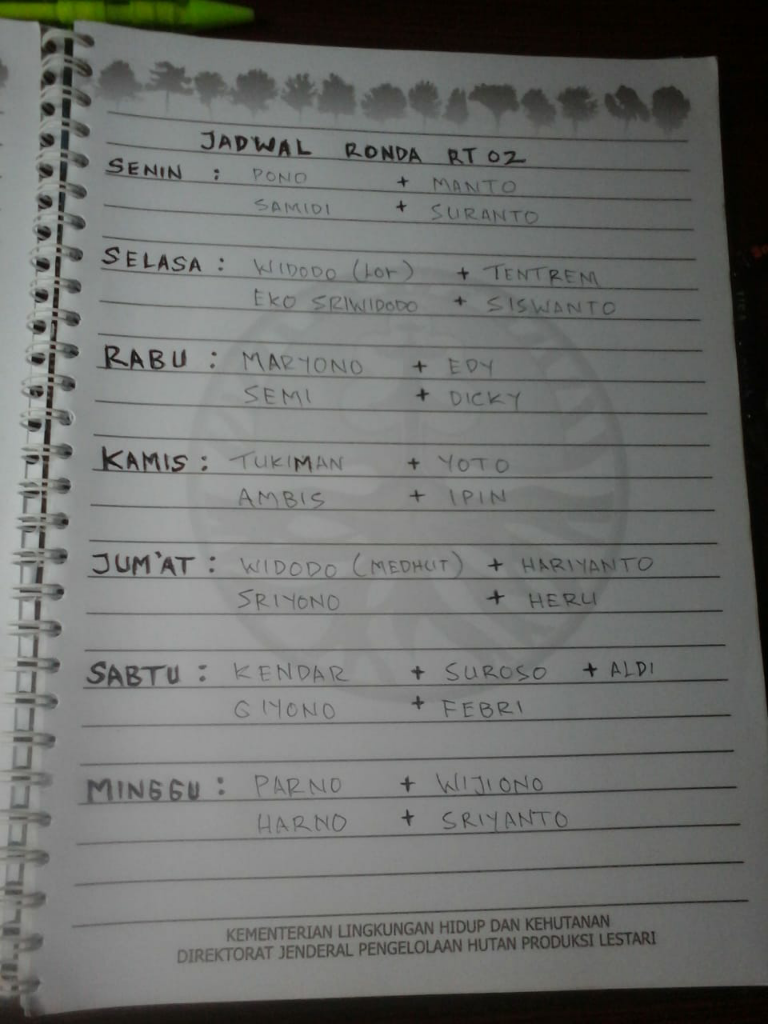 JADWAL RONDA RT 02
SENIN : PONO + MANTO
SAMIDI + SURANTO
SELASA : WIDODO (LOR) + TENTREM
EKO SRIWIDODO + SISWANTO
RABU : MARYONO + EDY
SEMI + DICKY
KAMIS : TUKIMAN + YOTO
AMBIS + IPIN
JUM'AT : WIDODO (MEDHUT) + HARIYANTO
SRIYONO + HERU
SABTU : KENDAR + SUROSO + ALDI
GIYONO + FEBRI
MINGGU : PARNO + WIJIONO
HARNO + SRIYANTO
KEMENTERIAN LINGKUNGAN HIDUP DAN KEHUTANAN
DIREKTORAT JENDERAL PENGELOLAAN HUTAN PRODUKSI LESTARI